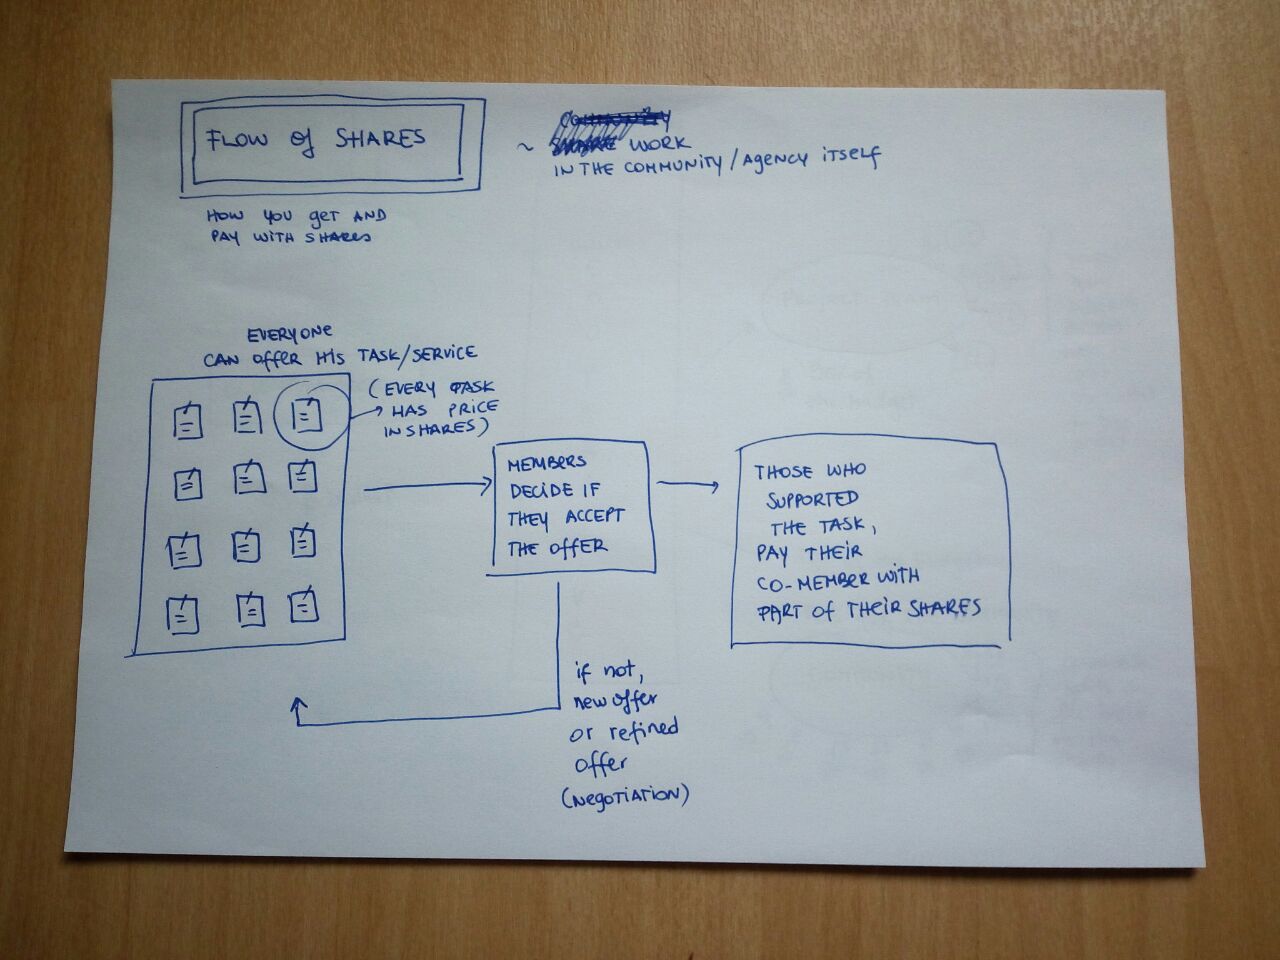 FLOW of SHARES
~ WORK
IN THE COMMUNITY/AGENCY ITSELF
HOW YOU GET AND
PAY WITH SHARES
EVERYONE
CAN OFFER HIS TASK/SERVICE
(EVERY TASK
HAS PRICE
IN SHARES)
MEMBERS
DECIDE IF
THEY ACCEPT
THE OFFER
THOSE WHO
SUPPORTED
THE TASK,
PAY THEIR
CO-MEMBER WITH
PART OF THEIR SHARES
if not,
new offer
or refined
offer
(NEGOTIATION)